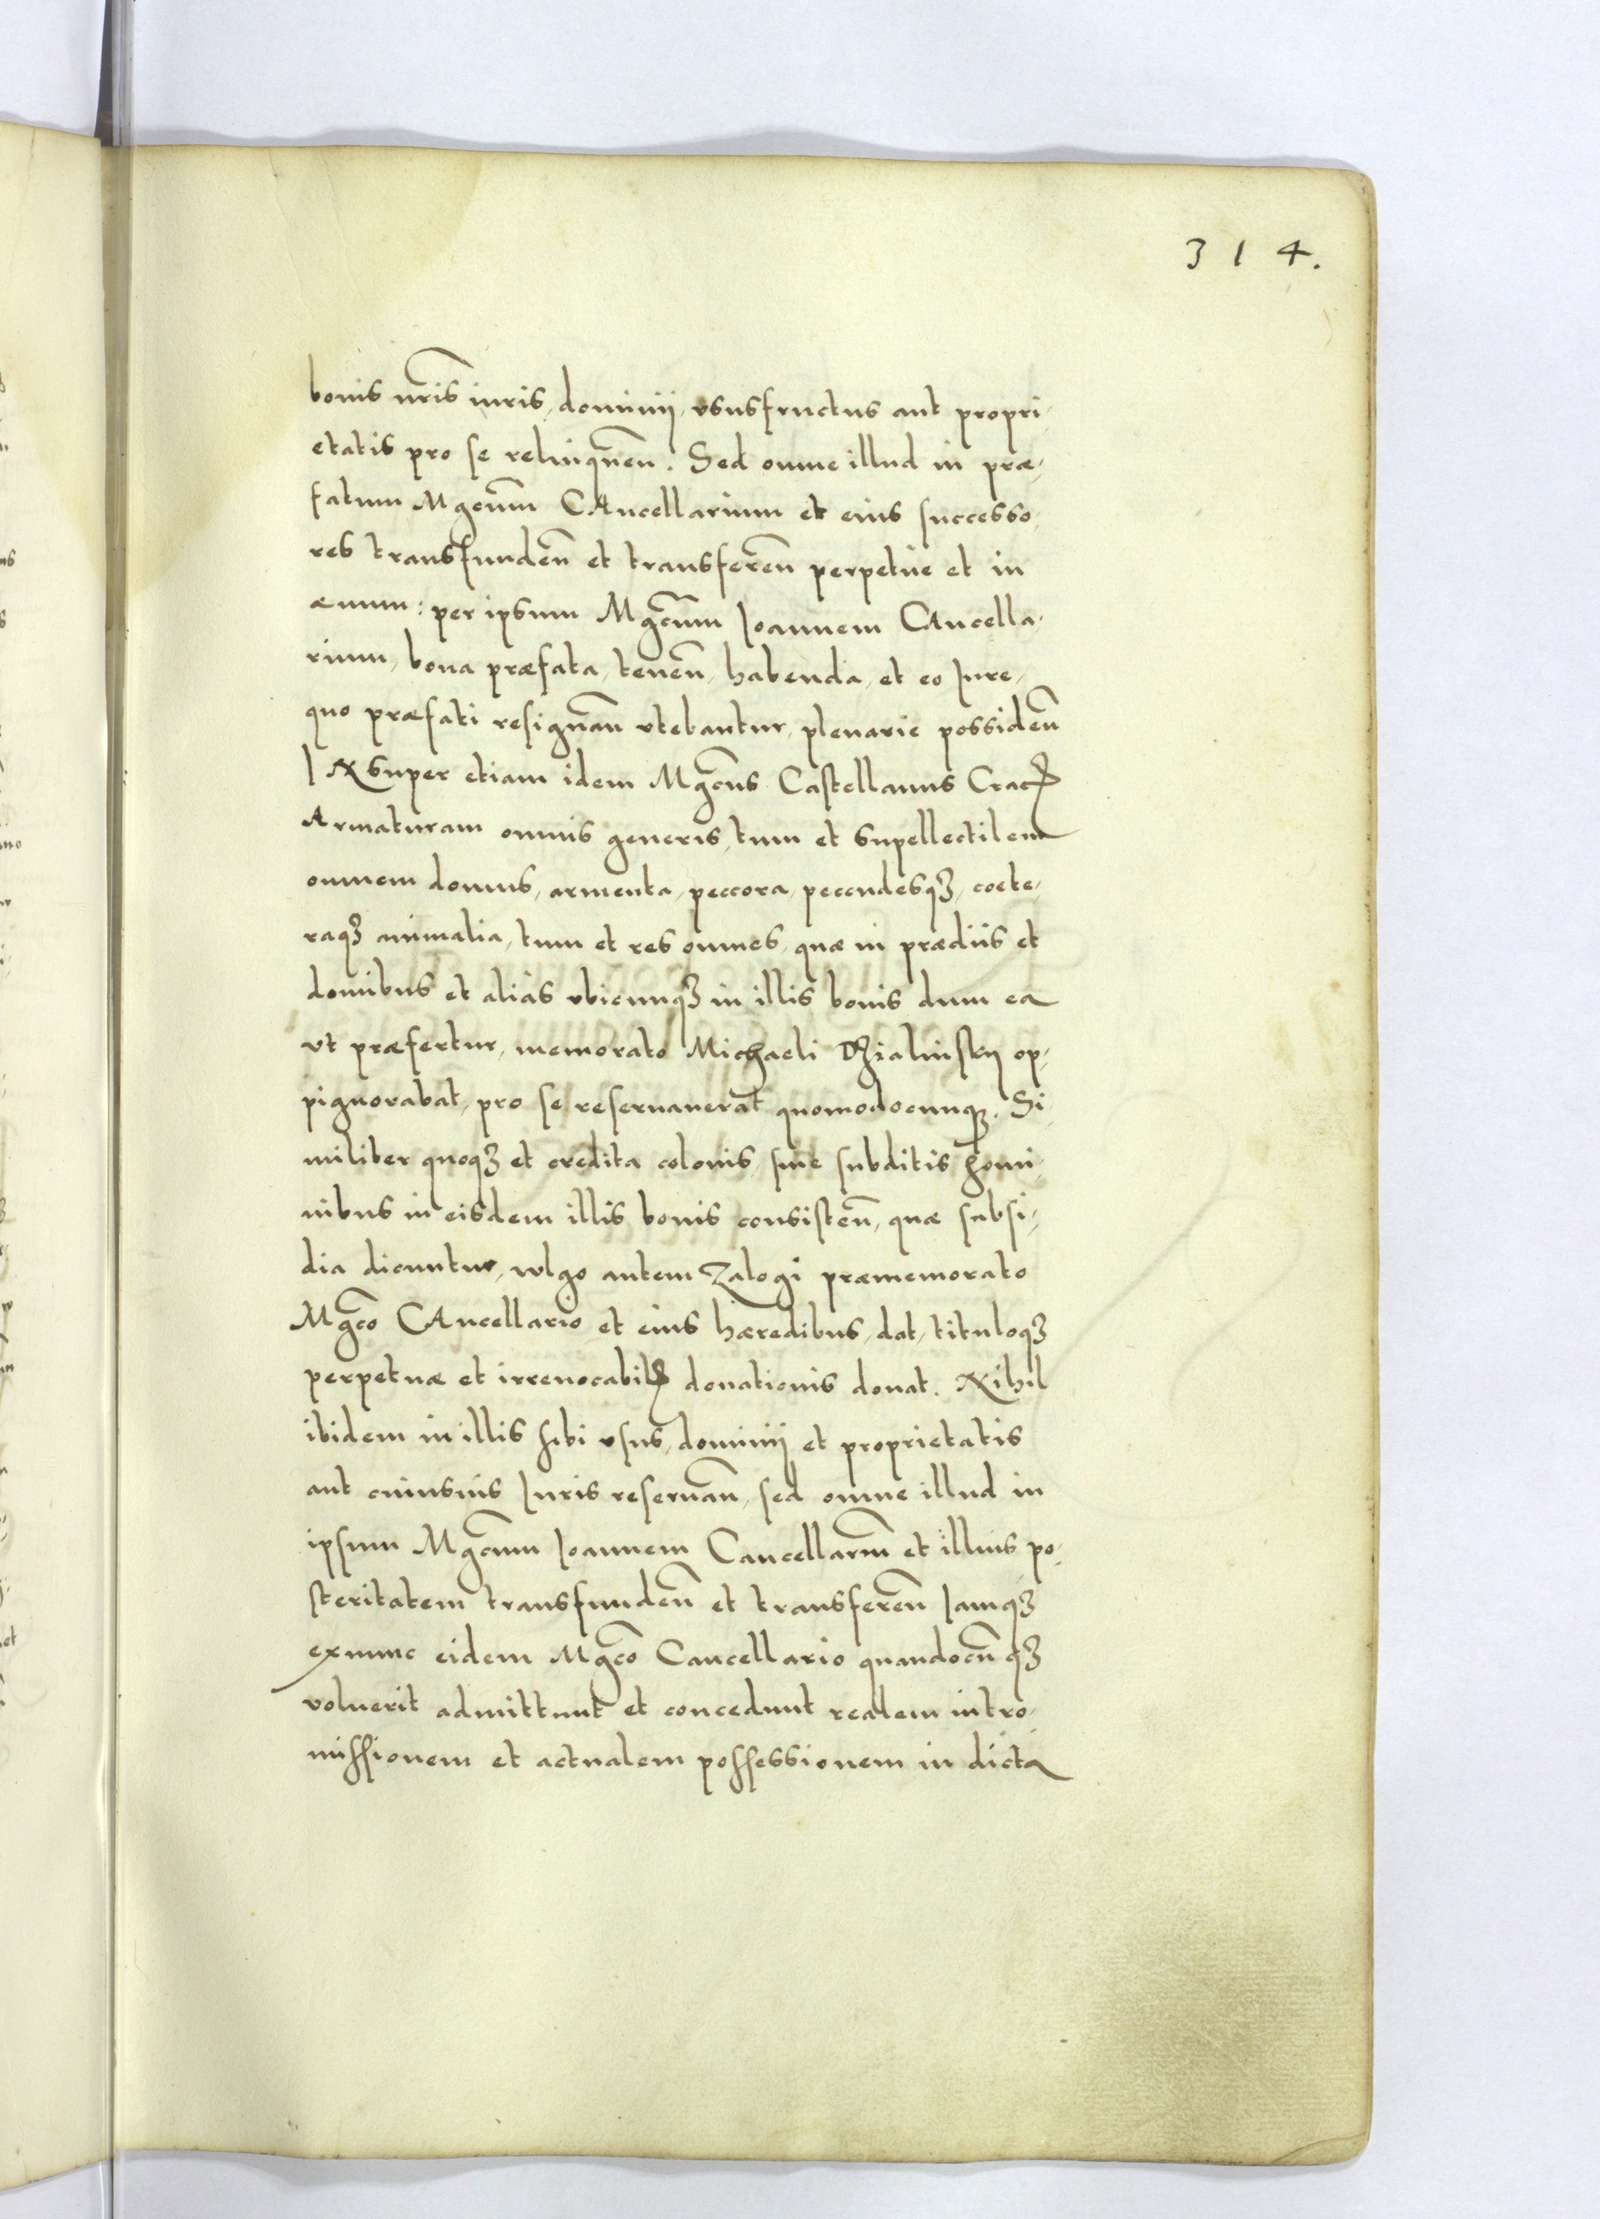 314.
bonis nr̃is iuris, dominij, vsusfructus aut propri,
etatis pro se relinquen̄. Sed omne illud in præ,
fatum Mgcūm CAncellarium et eius successo,
res transfunden̄ et transferen̄ perpetue et in
æuum: per ipsum Mgcūm Ioannem CAncella,
rium, bona præfata, tenen̄, habenda, et eo Iure,
quo præfati resignan̄ vtebantur, plenarie possiden̄
INsuper etiam idem Mgcūs Castellanus Crac̄
Armaturam omnis generis, tum et supellectilem
omnem domus, armenta, peccora, pecudesqꝫ, coete,
raqꝫ animalia, tum et res omnes, quæ in prædiis et
domibus et alias vbicunqꝫ in illis bonis dum ea
vt præfertur, memorato Michaeli Dzialinsky op,
pignorabat, pro se reseruauerat quomodocunqꝫ. Si,
militer quoqꝫ et credita colonis siue subditis homi,
nibus in eisdem illis bonis consisten̄, quæ subsi,
dia dicuntur, vulgo autem Zalogi præmemorato
Mgc̄o CAncellario et eius hæredibus, dat, tituloqꝫ
perpetuæ et irreuocabil̄ donationis donat. Nihil
ibidem in illis sibi vsus, dominij et proprietatis
aut cuiusuis Iuris reseruan̄, sed omne illud in
ipsum Mgcūm Ioannem Cancellar̄m et illius po,
steritatem transfunden̄ et transferen̄ Iamqꝫ
exnunc eidem Mgc̄o Cancellario quandocūnqꝫ
voluerit admittunt et concedunt realem intro,
missionem et actualem possessionem in dicta